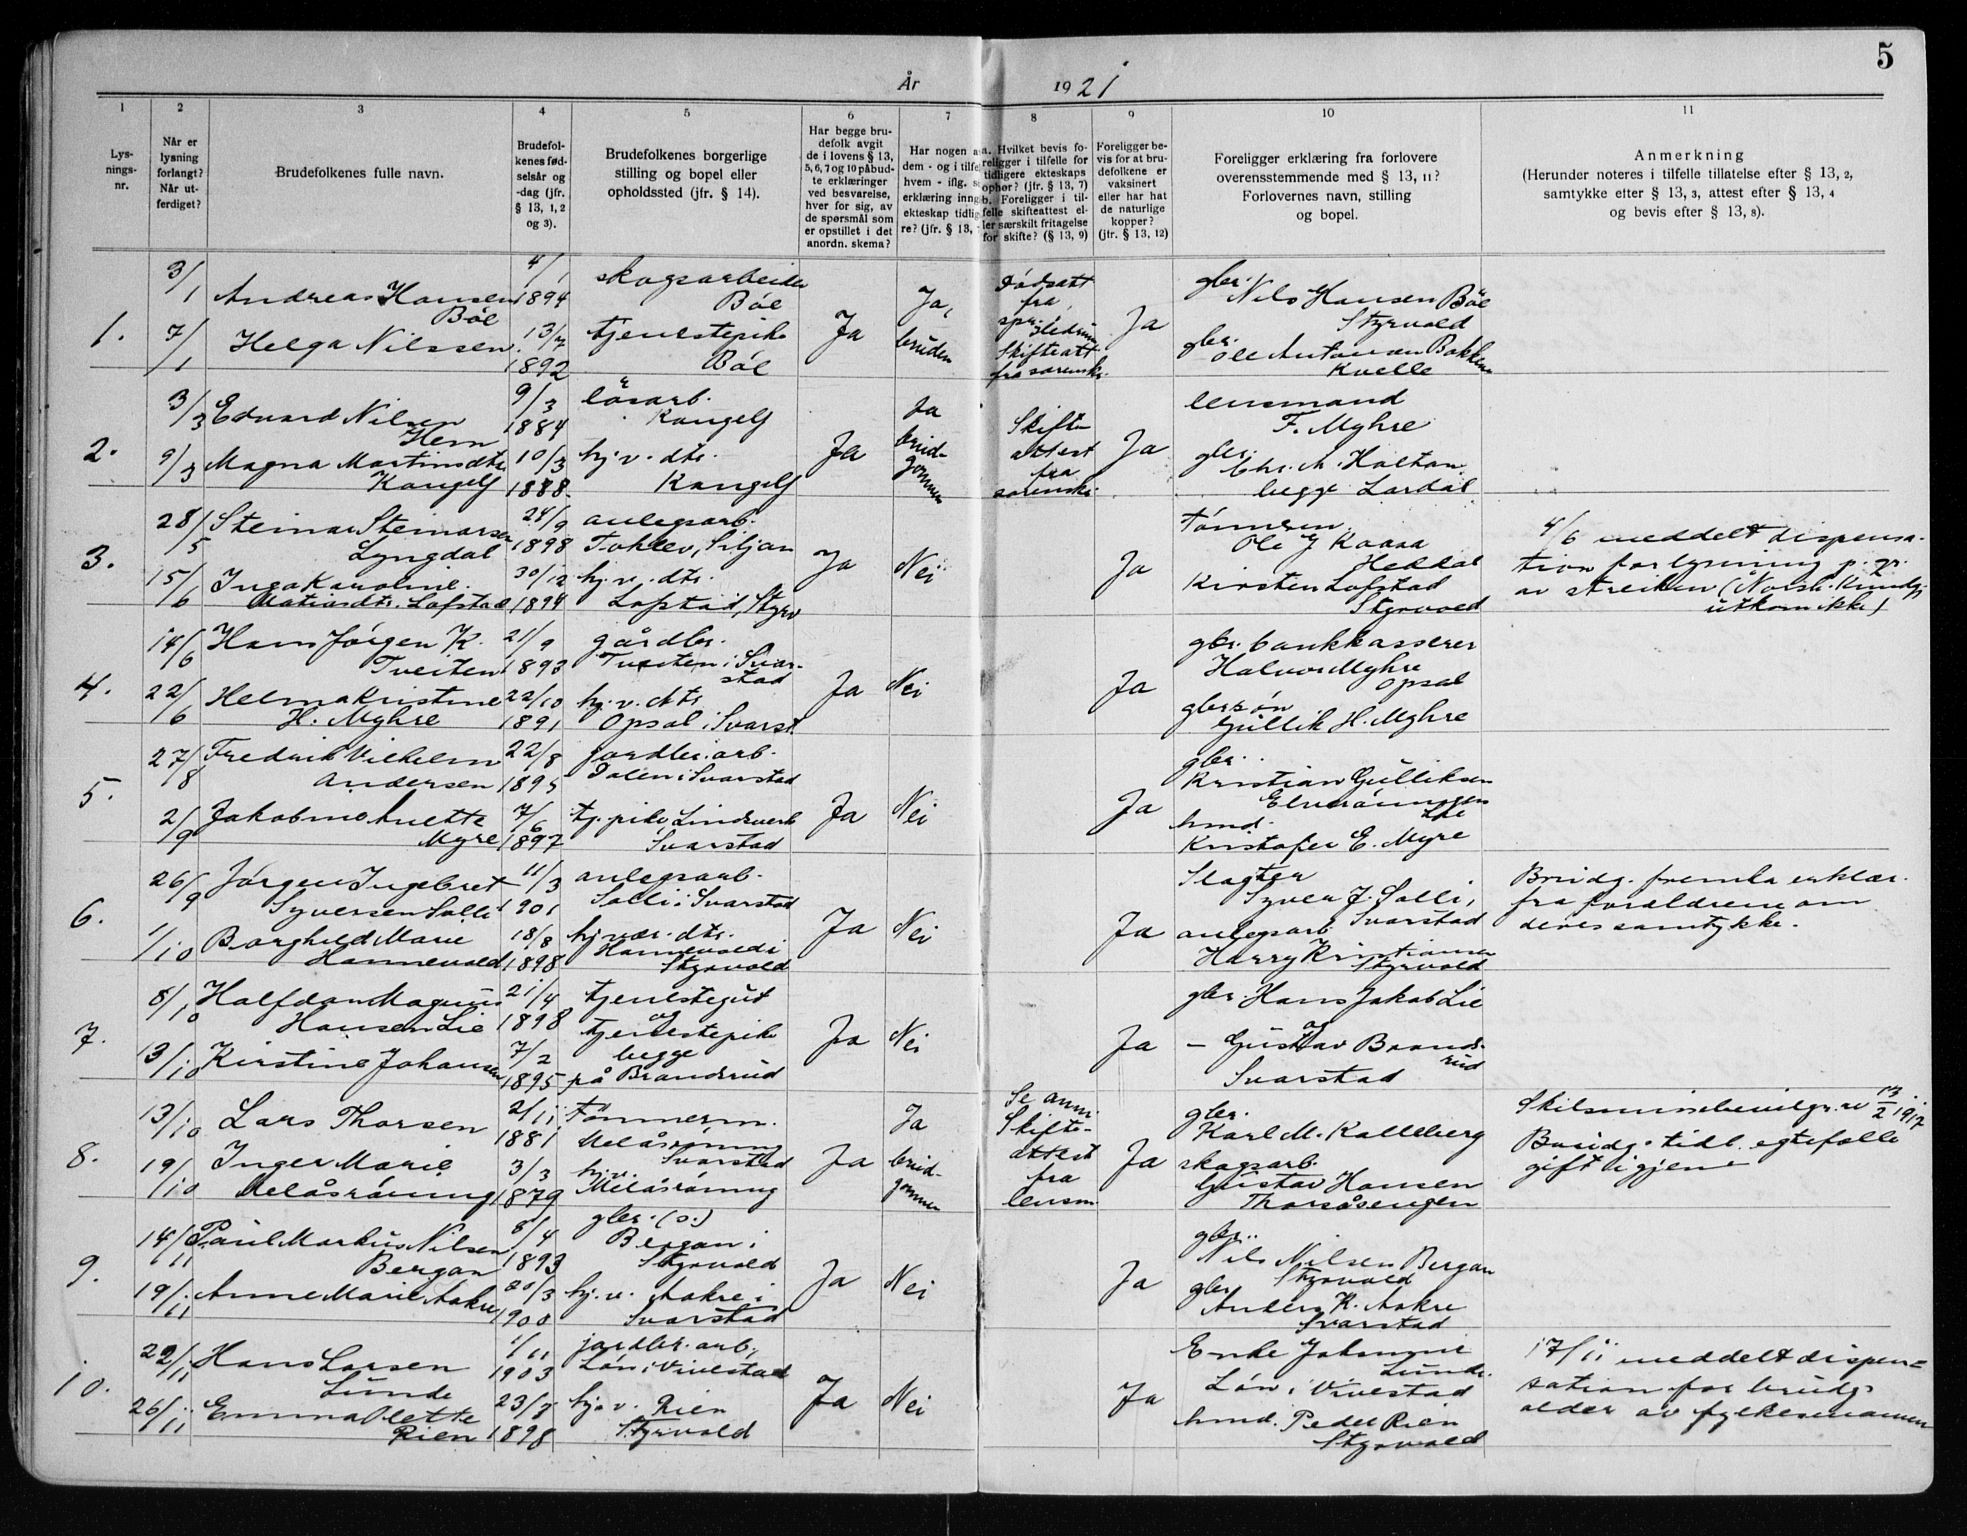 5
År 1921
1 2 3 4 5 6 7 8 9 10 11
Lys-
nings-
nr.
Når er
lysning
forlangt?
Når ut-
ferdiget?
Brudefolkenes fulle navn.
Brudefol-
kenes fød-
selsår og
-dag (jfr.
§ 13, 1, 2
og 3).
Brudefolkenes borgerlige
stilling og bopel eller
opholdssted (jfr. § 14).
Har begge bru-
defolk avgit
de i lovens § 13,
5, 6, 7 og 10 påbud-
te erklæringer
ved besvarelse,
hver for sig, av
de spørsmål som
er opstillet i det
anordn. skema?
Har nogen a
dem - og i tilfel
hvem - iflg. s
erklæring inng
ekteskap tidlig
re? (jfr. § 13,
a. Hvilket bevis fo-
religger i tilfelle for
tidligere ekteskaps
ophør? (jfr. § 13, 7)
b. Foreligger i til-
felle skifteattest el-
ler særskilt fritagelse
for skifte? (§ 13, 9)
Foreligger be-
vis for at bru-
defolkene er
vaksinert
eller har hat
de naturlige
kopper?
(jfr. § 13, 12)
Foreligger erklæring fra forlovere
overensstemmende med § 13, 11?
Forlovernes navn, stilling
og bopel.
Anmerkning
(Herunder noteres i tilfelle tillatelse efter § 13, 2,
samtykke etter § 13, 3, attest efter § 13, 4
og bevis efter § 13, 8).
1.
3/1
7/1
Andreas Hansen
Böe
Helga Nilssen
4/1
1894
13/7
1892
skogsarbeider
Böe
tjenestepike
Böe
Ja
Ja,
bruden
Dödsatt
fra
Skifteatt
fra sorenskr.
Ja
gbr.
Nils Hansen Böe
Styrvold
gbr.
Ole Antonsen Bakken
Kvelle
2.
3/3
9/3
Edvard Nilsen
Hem
Magna Martinsdtr.
Kongelf
9/3
1884
10/3
1888
lösarb.
Kongelf
hj. v. dtr.
Kongelf
Ja
Ja
brud-
gommen
Skifte
attest
fra
sorenskr.
Ja
lensmand
F. Myhre
gbr.
Chr. A. Holtan
begge Lardal
3.
28/5
15/6
Steinar Steinarsen
Lyngdal
Inga Karoline
Lofstad
24/9
1898
30/12
1894
anlegsarb.
Siljan
hj. v. dtr.
Lofstad, Styrv
Ja
Nei
Ja
Ole J Kaasa
Heddal
Kirsten Lofstad
Styrvold
4/6 meddelt dispensa-
tion for lysning p. gr.
av streiken (Norsk. Kundgj.
utkom ikke)
4.
14/6
22/6
Hans Jörgen K.
Tveiten
Helma Kristine
H. Myhre
21/9
1893
22/10
1891
gårdbr.
Tveiten i Svar-
stad
hj. v. dtr
Opsal i Svarst.
Ja
Nei
Ja
gbr. bankkasserer
Halvor Myhre
Opsal
gbrsön
Gullik H. Myhre
5.
27/8
2/9
Fredrik Vilhelm
Andersen
Jakobine Anette
Myre
22/8
1895
7/6
1897
jordbr. arb.
Dalen i Svarstad
tj. pike Lindsverk
Svarstad
Ja
Nei
Ja
gbr.
Kristian Gulliksen
hmd.
Kristofer E. Myre
6.
26/9
1/10
Jörgen Ingebret
Syversen Solli
Borghild Marie
Hannevold
11/3
1901
18/8
1898
anlegsarb.
Solli i Svarstad
hj. vær. dtr.
Hannevold i
Styrvold
Ja
Nei
Ja
Slagter
Syver J. Solli,
Svarstad
anlegsarb
Harry Kristiansen
Styrvold
Brudg. fremla erklær.
fra forældrene om
deres samtykke.
7.
8/10
13/10
Halfdan Magnus
Hansen Lie
Kirstine Johansen
21/4
1898
7/2
1895
tjenestegut
og
tjenestepike
begge
på Brandsrud
Ja
Nei
Ja
gbr. Hans Jakob Lie
og
— Gustav Brands-
rud
Svarstad
8.
13/10
19/10
Lars Thorsen
Inger Marie
Melåsröning
2/11
1881
3/3
1879
Tömmerm.
Melåsröning
Svarstad
hj. v.
Melåsröning
Ja
Ja
brud-
gommen
Se anm.
Skifte-
attest
fra
lensm
Ja
gbr.
Karl M. Kalleberg
skogsarb.
Gustav Hansen
Thorsåsengen
Skilsmissebevilgn. av 13/2 1917
Brudg. tidl. egtefælle
gift igjen
9.
14/11
19/11
Paul Markus Nilsen
Bergan
Anne Marie Aakre
8/4
1893
20/3
1900
gbr. (s.)
Bergan i
Styrvold
hj. v. Aakre i
Svarstad
Ja
Nei
Ja
gbr.
Nils Nilsen Bergan
Styrvold
gbr.
Anders K. Aakre
Svarstad
10.
22/11
26/11
Hans Larsen
Lunde
Emma Olette
Rien
1/11
1903
23/8
1898
jordbr. arb.
Lön i Vivestad
hj. v. Rien
Styrvold
Ja
Nei
Ja
Enke
Lunde
Lön i Vivestad
hmd. Peder Rien
Styrvold
17/11 meddelt dispen=
sation for brudg.
alder av fylkesmannen